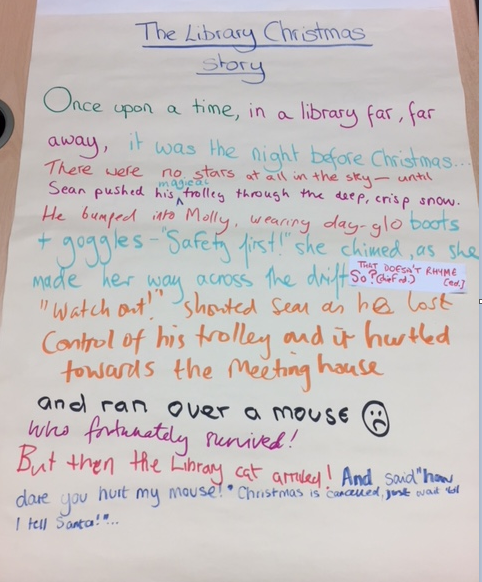 The Library Christmas
story
Once upon a time, in a library far, far
away, it was the night before Christmas...
There were no stars at all in the sky — until
magical
Sean pushed his ^ trolley through the deep, crisp snow.
He bumped into Molly, wearing day-glo boots
+ goggles - "Safety first!" she chimed, as she
made her way across the drift
THAT DOESN'T RHYME
(ed.)
So? (chief ed.)
"Watch out!" shouted Sean as he lost
Control of his trolley and it hurtled
towards the Meeting house
and ran over a mouse
who fortunately survived!
But then the Library cat arrived! And said "how
dare you hurt my mouse!" Christmas is cancelled, just wait 'till
I tell Santa!"...